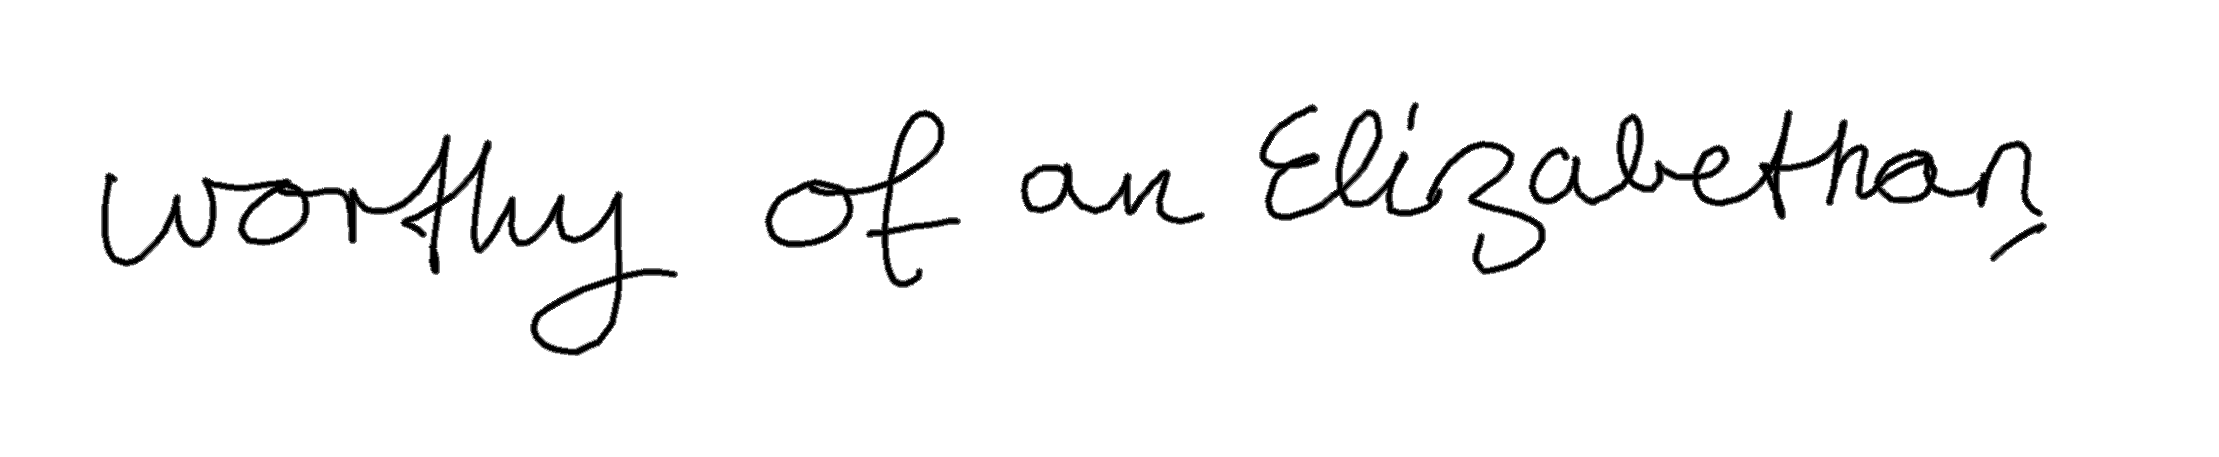 worthy of an Elizabethan,